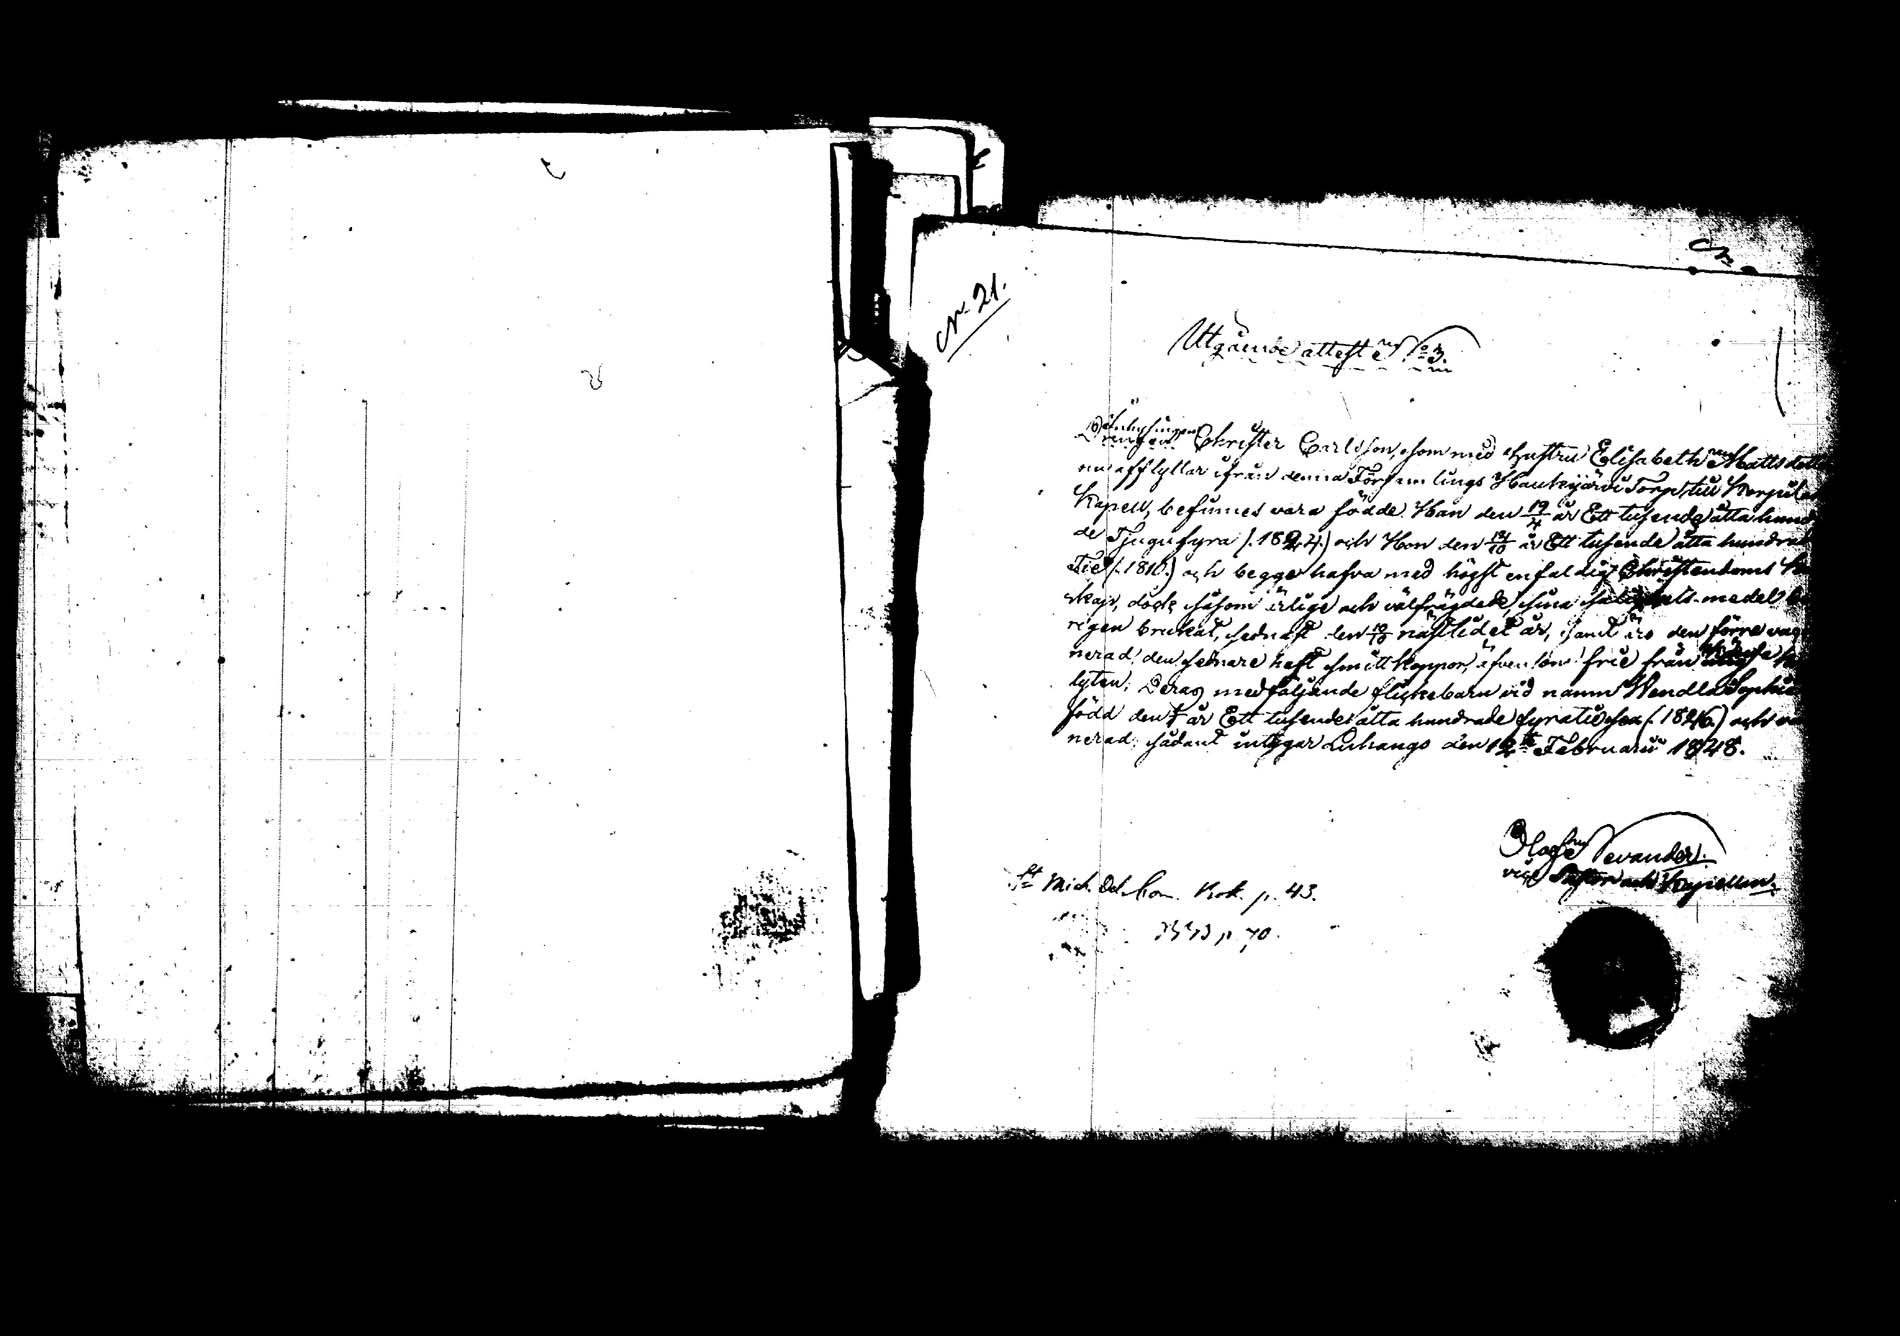 N 21.
Utgående attest N:o 3.
Christer Carlsson, som med hustru Elisabeth Matts
nu afflyttar ifrån denna Församlings Haukijärvi Torp till Korpilax
Kapell, befinnes vara födde: Han den 19/4 år Ett tusende åtta hund
de Tjugufyra (:1824:) och Hon den 13/10 år Ett tusende åtta hundra
Tie (:1810:) och begge hafva med högst enfaldig Christendoms
skap, dock såsom ärlige och välfrägdade, sina salighets-medel
rigen brukat, sednast den 10/10 nästlidet år, samt äro den förre vac
nerad, den sednare haft smittkoppor, äfvensom frie från
lyten; Deras medföljande flickebarn vid namn Wendla Sophia
född den år Ett tusende åtta hundrade fyratiosex (:1846:) och
nerad; sådant intygar Luhango den 12 Februarii 1848.
Olof Nevander.
vice Pastor och Kapellan.
Kok. p. 43.
p. 70.